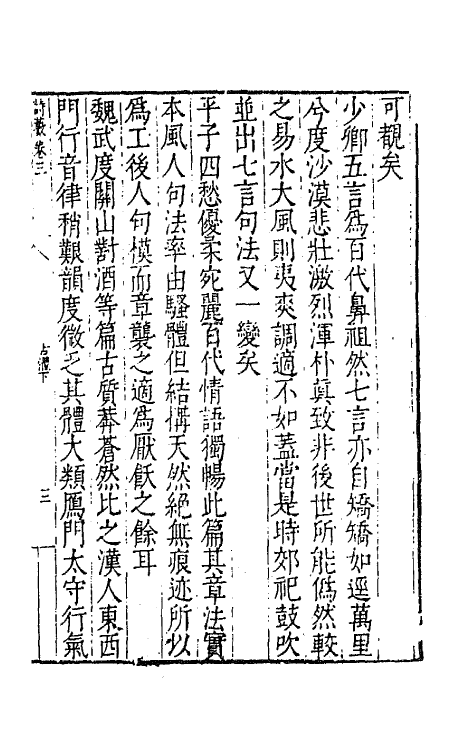 可觀矣
少卿五言為百代鼻祖然七言亦自矯矯如逕萬里
兮度沙漠悲壯激烈渾朴眞致非後世所能偽然較
之易水大風則夷爽調適不如蓋當是時郊祀鼓吹
並出七言句法又一變矣
平子四愁優柔宛麗百代情語獨暢此篇其章法實
本風人句法率由騷體但結搆天然絕無痕迹所以
為工後人句模而章襲之適為厭飫之餘耳
魏武度關山對酒等篇古質莽蒼然比之漢人東西
門行音律稍艱韻度微乏其體大類鴈門太守行氣
詩藪卷三 古體下 三